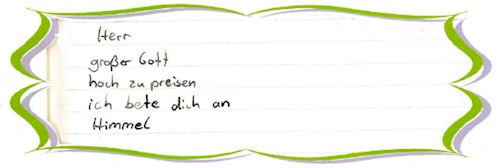 Herr
großer Gott
hoch zu preisen
ich bete dich an
Himmel